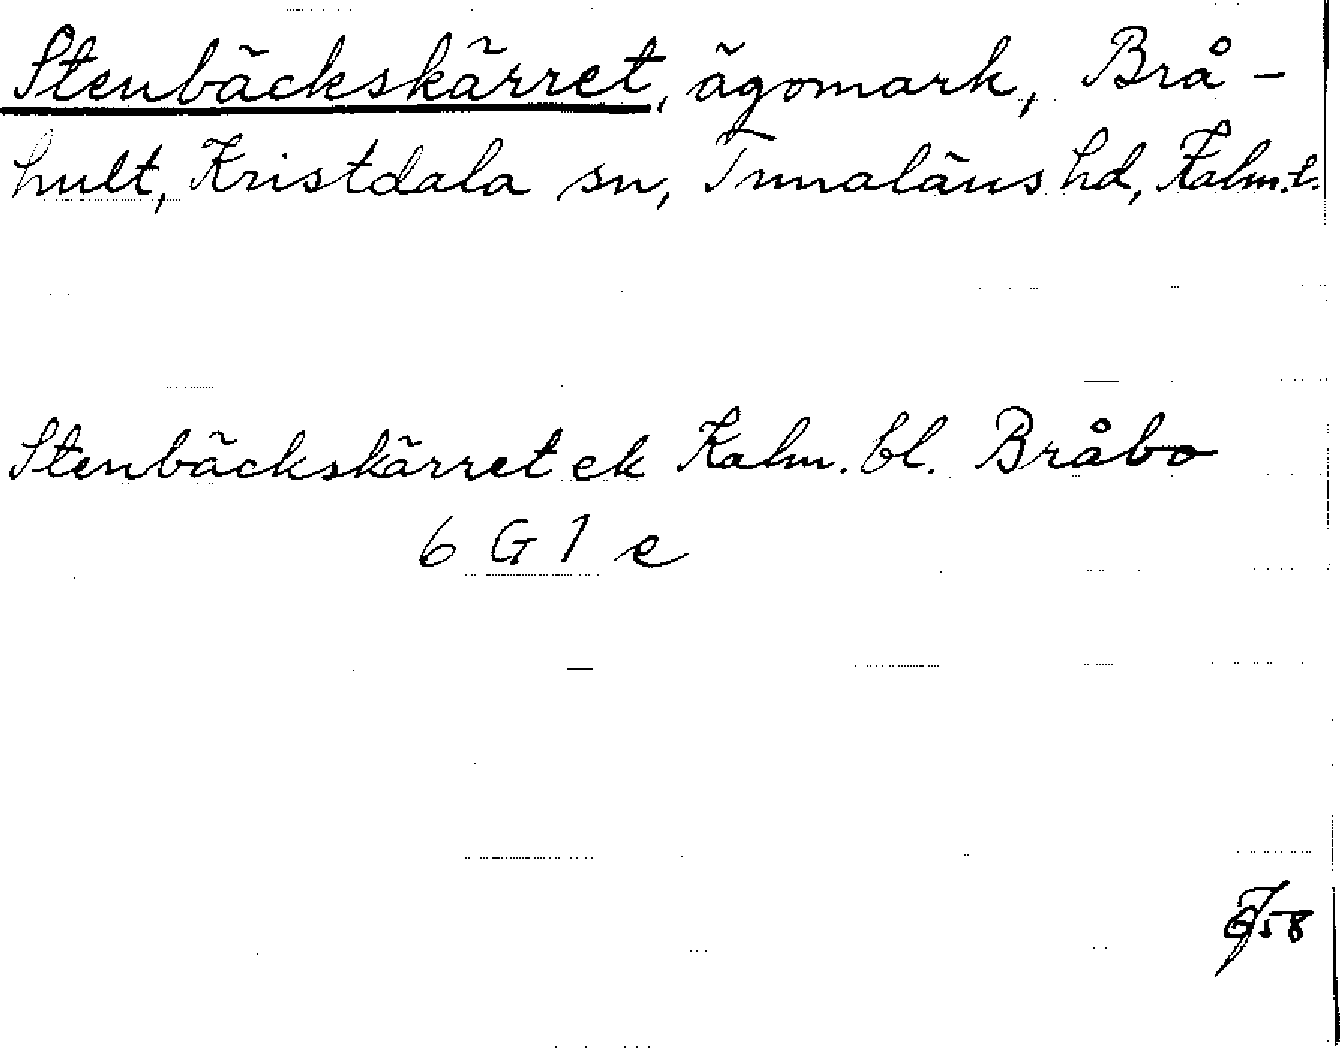 Stenbäckskärret, ägomark, Brå-
hult, Kristdala sn, Tunaläns hd, Kalm. l.
Stenbäckskärret ek Kalm. bl. Bråbo
6 G 1 e
58